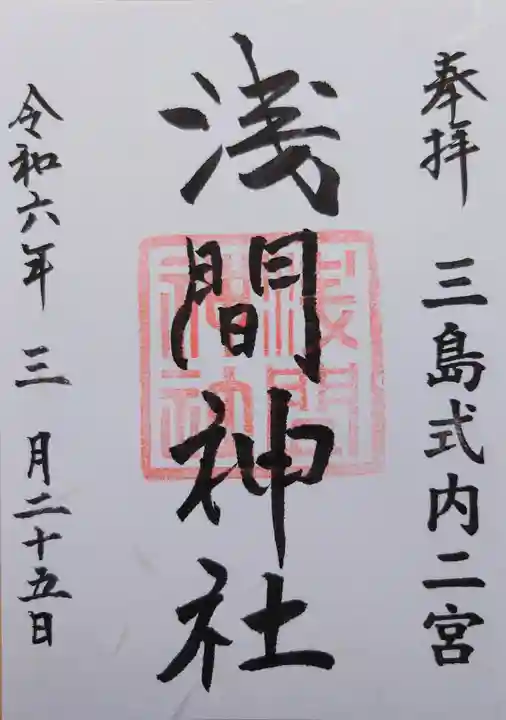 奉拝 三島式内二宮
浅間神社
浅間神社
令和六年 三 月二十五日